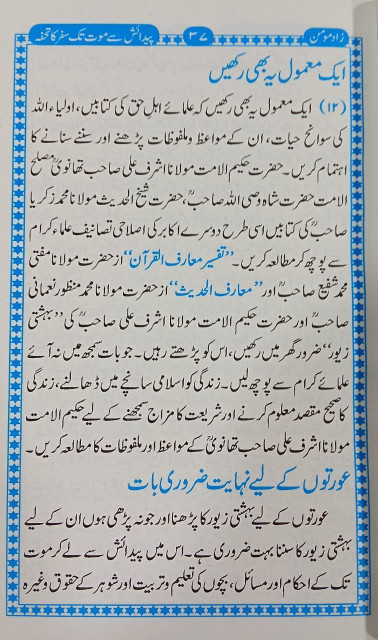 زاد مومن ۳۷ پیدائش سے موت تک سفر کا تحفہ
ایک معمول یہ بھی رکھیں
(۱۲) ایک معمول یہ بھی رکھیں کہ علمائے اہل حق کی کتابیں، اولیاء اللہ
کی سوانح حیات، ان کے مواعظ و ملفوظات پڑھنے اور سننے سنانے کا
اہتمام کریں۔ حضرت حکیم الامت مولانا اشرف علی صاحب تھانویؒ، مصلح
الامت حضرت شاہ وصی اللہ صاحبؒ، حضرت شیخ الحدیث مولانا محمد زکریا
صاحبؒ کی کتابیں اسی طرح دوسرے اکابر کی اصلاحی تصانیف علماء کرام
سے پوچھ کر مطالعہ کریں۔ ”تفسیر معارف القرآن“ از حضرت مولانا مفتی
محمد شفیع صاحبؒ اور ”معارف الحدیث“ از حضرت مولانا محمد منظور نعمانی
صاحبؒ اور حضرت حکیم الامت مولانا اشرف علی صاحبؒ کی ”بہشتی
زیور“ ضرور گھر میں رکھیں، اس کو پڑھتے رہیں۔ جو بات سمجھ میں نہ آئے
علمائے کرام سے پوچھ لیں۔ زندگی کو اسلامی سانچے میں ڈھالنے، زندگی
کا صحیح مقصد معلوم کرنے اور شریعت کا مزاج سمجھنے کے لیے حکیم الامت
مولانا اشرف علی صاحب تھانویؒ کے مواعظ اور ملفوظات کا مطالعہ کریں۔
عورتوں کے لیے نہایت ضروری بات
عورتوں کے لیے بہشتی زیور کا پڑھنا اور جو نہ پڑھی ہوں ان کے لیے
بہشتی زیور کا سننا بہت ضروری ہے۔ اس میں پیدائش سے لے کر موت
تک کے احکام اور مسائل، بچوں کی تعلیم و تربیت اور شوہر کے حقوق وغیرہ